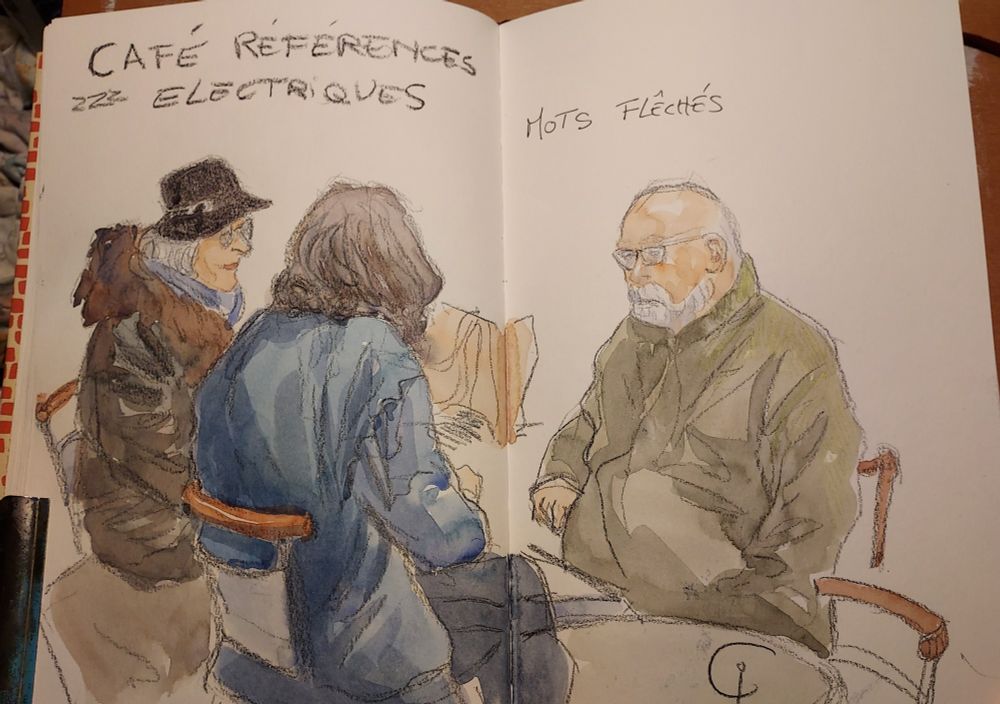 CAFÉ RÉFÉRENCES
zzz ELECTRIQUES
MOTS FLÊCHÉS